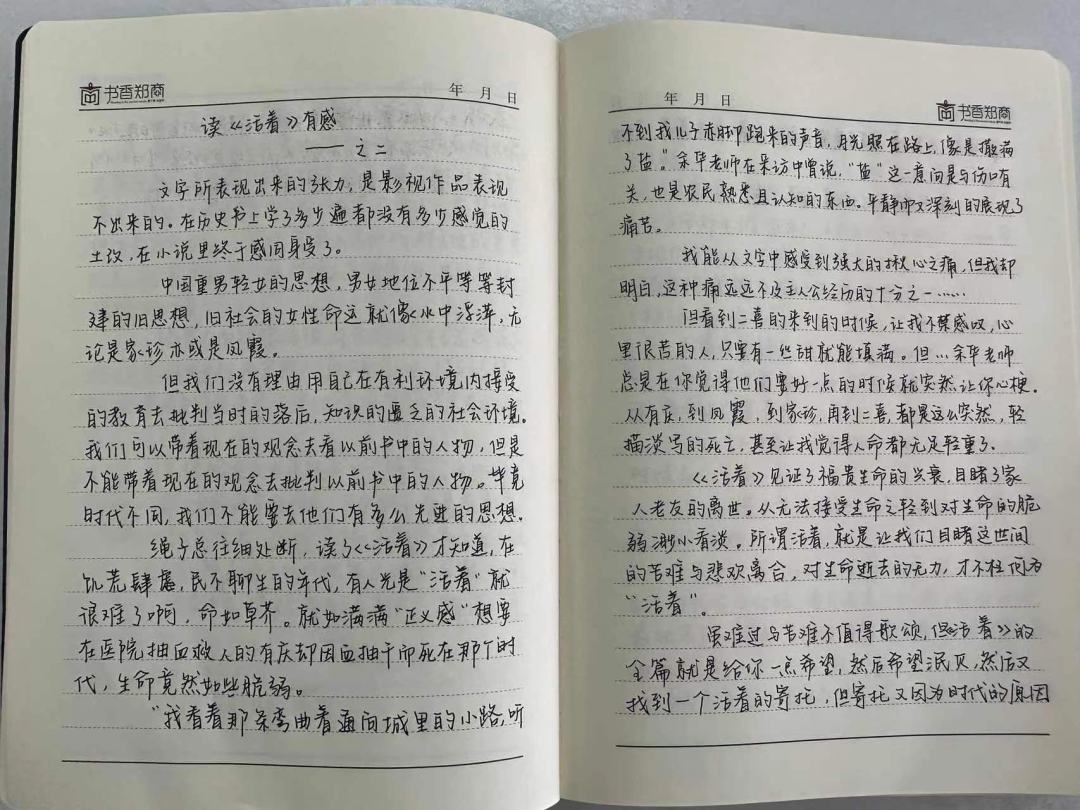 书香郑商
年 月 日
读《活着》有感
——之二
文字所表现出来的张力,是影视作品表现
不出来的。在历史书上学了多少遍都没有多少感觉的
土改,在小说里终于感同身受了。
中国重男轻女的思想,男女地位不平等等封
建的旧思想,旧社会的女性命运就像水中浮萍,无
论是家珍亦或是凤霞。
但我们没有理由用自己在有利环境内接受
的教育去批判当时的落后,知识的匮乏的社会环境。
我们可以带着现在的观念去看以前书中的人物,但是
不能带着现在的观念去批判以前书中的人物。毕竟
时代不同,我们不能要去他们有多么先进的思想。
绳子总往细处断,读了《活着》才知道,在
饥荒肆虐,民不聊生的年代,有人光是“活着”就
很难了啊,命如草芥。就如满满“正义感”想要
在医院抽血救人的有庆却因血抽干而死在那个时
代,生命竟然如些脆弱。
“我看着那条弯曲着通向城里的小路,听
年 月 日
书香郑商
不到我儿子赤脚跑来的声音,月光照在路上,像是撒满
了盐”。余华老师在采访中曾说,“盐”这一意向是与伤口有
关,也是农民熟悉且认知的东西。平静而又深刻的展现了
痛苦。
我能从文字中感受到强大的揪心之痛,但我却
明白,这种痛远远不及主人公经历的十分之一……
但看到二喜的来到的时候,让我不禁感叹,心
里很苦的人,只要有一丝甜就能填满。但…余华老师
总是在你觉得他们要好一点的时候就突然让你心梗。
从有庆,到凤霞,到家珍,再到二喜,都是这么突然,轻
描淡写的死亡,甚至让我觉得人命都无足轻重了。
《活着》见证了福贵生命的兴衰,目睹了家
人老友的离世。从无法接受生命之轻到对生命的脆
弱渺小看淡。所谓活着,就是让我们目睹这世间
的苦难与悲欢离合,对生命逝去的无力,才不枉何为
“活着”。
虽难过与苦难不值得歌颂,但《活着》的
全篇就是给你一点希望,然后希望泯灭,然后又
找到一个活着的寄托,但寄托又因为时代的原因